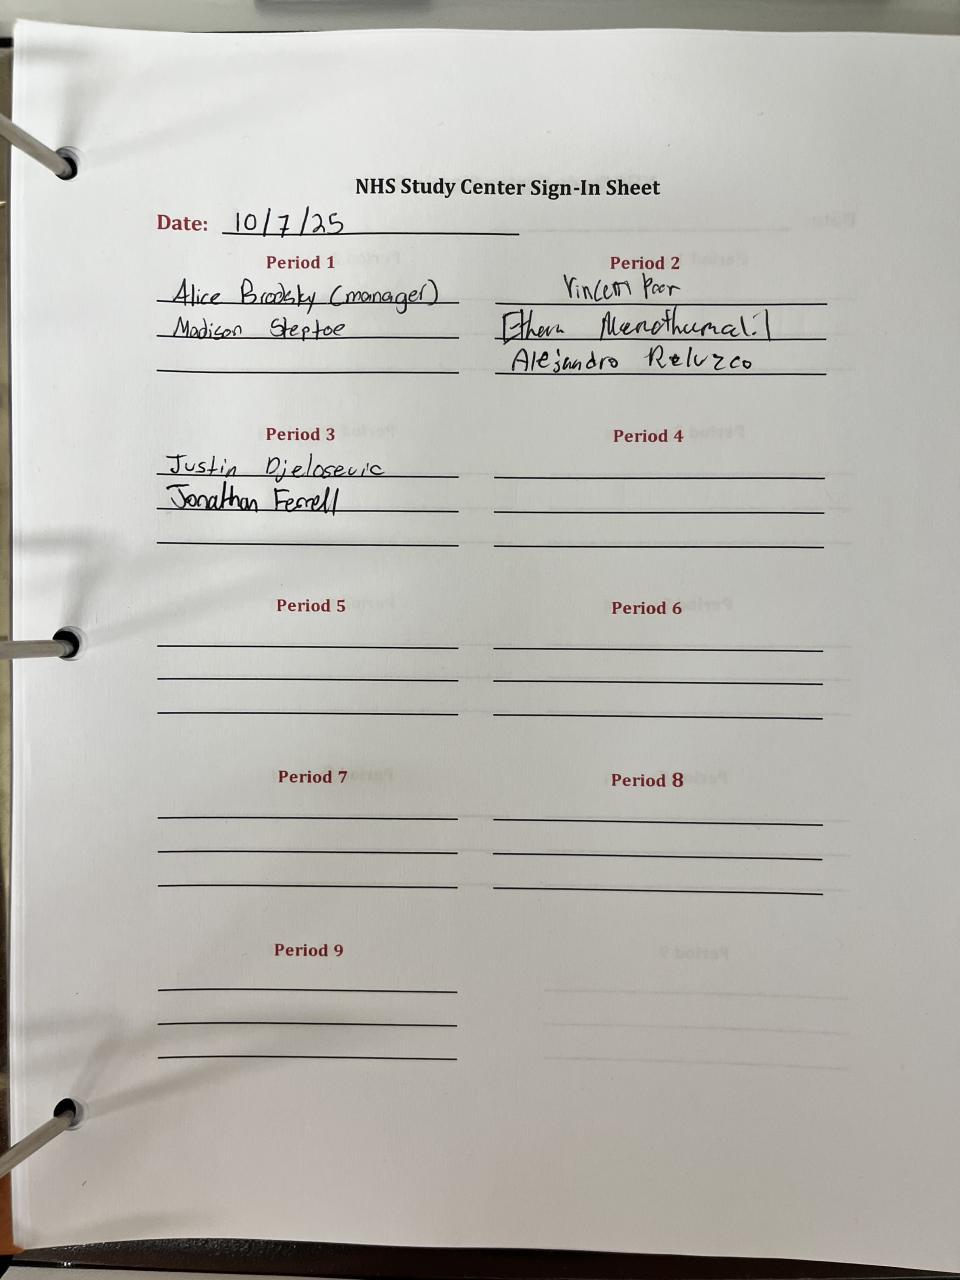 NHS Study Center Sign-In Sheet
Date: 10/7/25
Period 1
Alice Brodsky (manager)
Madison Steptoe
Period 2
Vincent Poor
Ethan
Alejandro Reluzco
Period 3
Justin Djelosevic
Jonathan Ferrell
Period 4
Period 5
Period 6
Period 7
Period 8
Period 9